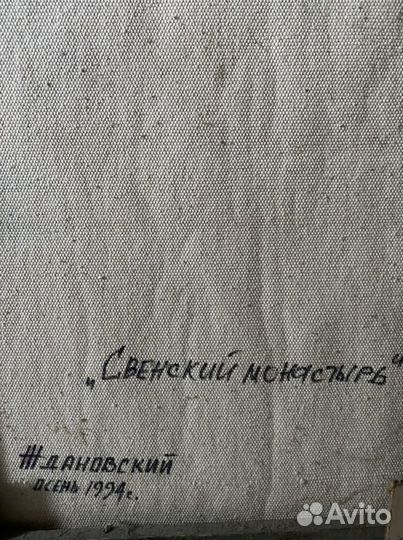 „Свенский монастырь"
Ждановский
осень 1994г.
Avito